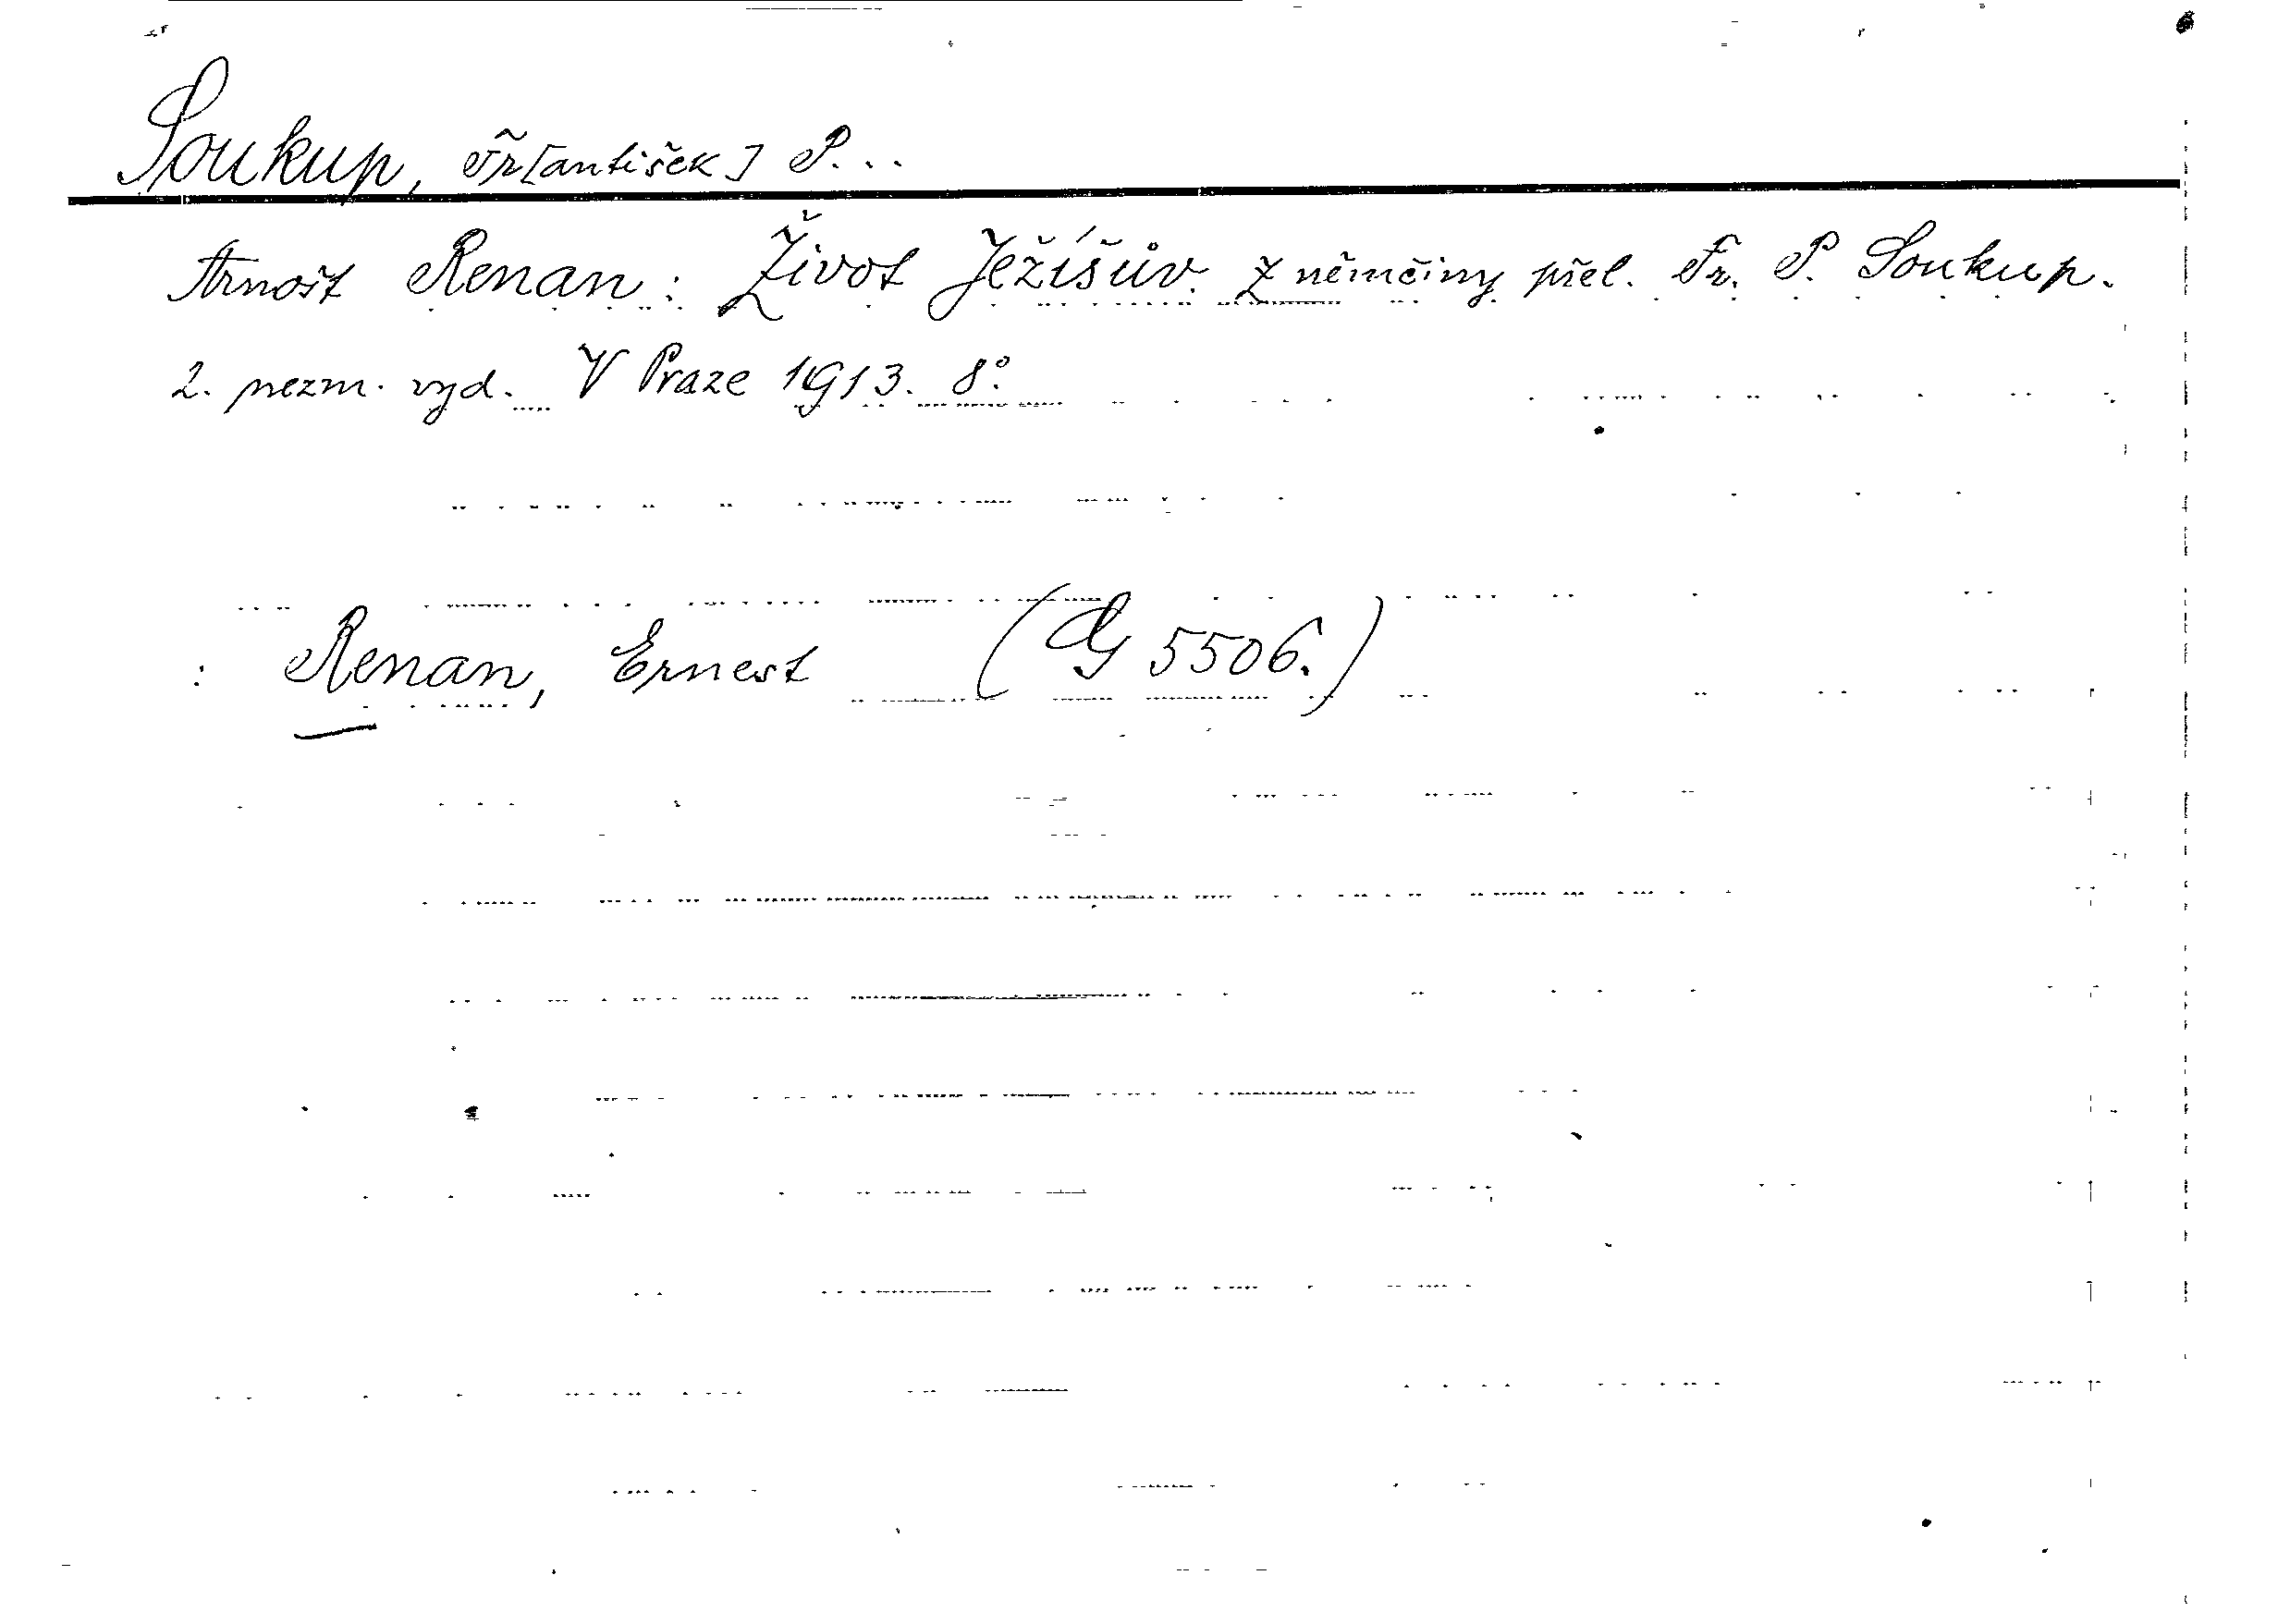 Soukup, Fr[antišek] P...
Arnošt Renan: Život Ježíšův. Z němčiny přel. Fr. P. Soukup.
2. nezm. vyd. V Praze 1913. 8°.
: Renan, Ernest (G 5506.)